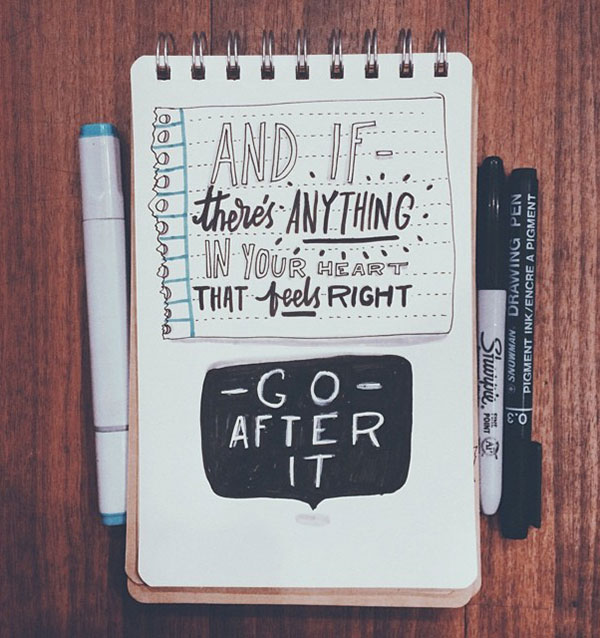 AND IF-
there's ANYTHING
IN YOUR HEART
THAT feels RIGHT
-GO-
AFTER
IT
Sharpie
FINE POINT
SNOWMAN DRAWING PEN
PIGMENT INK/ENCRE A PIGMENT